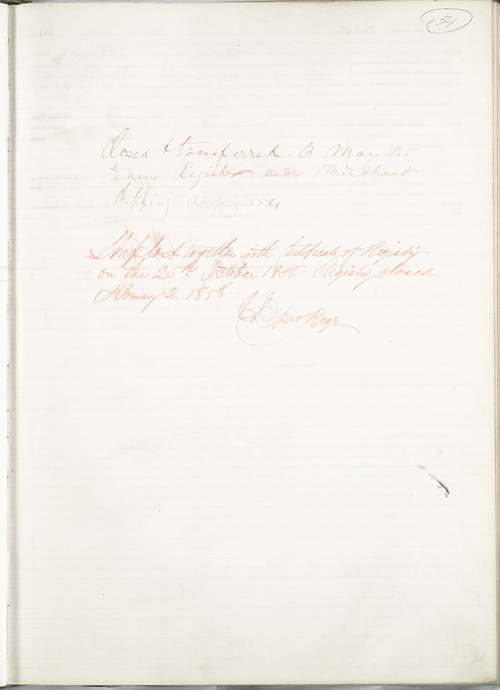 54
Closed & transferred to
in new Register under Merchant
Shipping Act 1854
Ship lost together with Certificate of Registry
on the 25th October 1856 Registry closed
February 2 1858